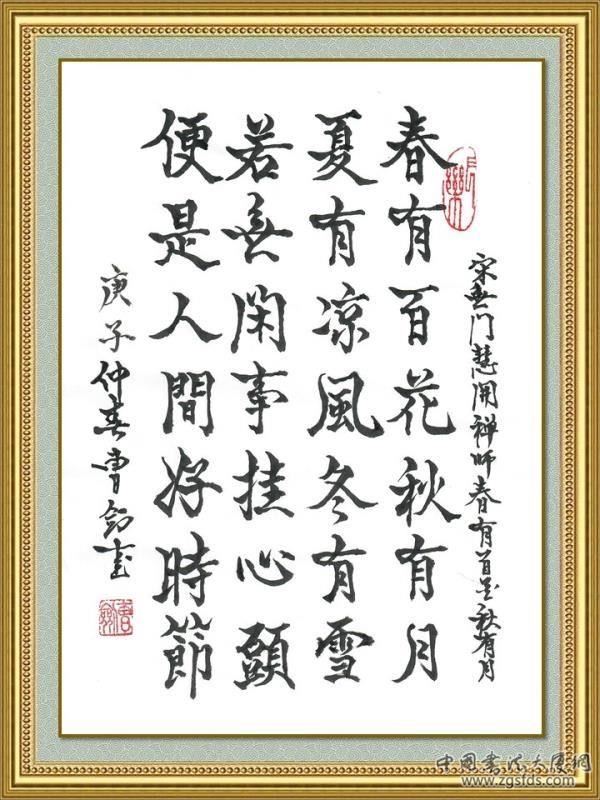 宋無门慧開禅师春有百花秋有月
春有百花秋有月
夏有凉風冬有雪
若無閑事挂心頭
便是人間好時節
庚子仲春曹剑書
中国書法大厦網
www.zgsfds.com